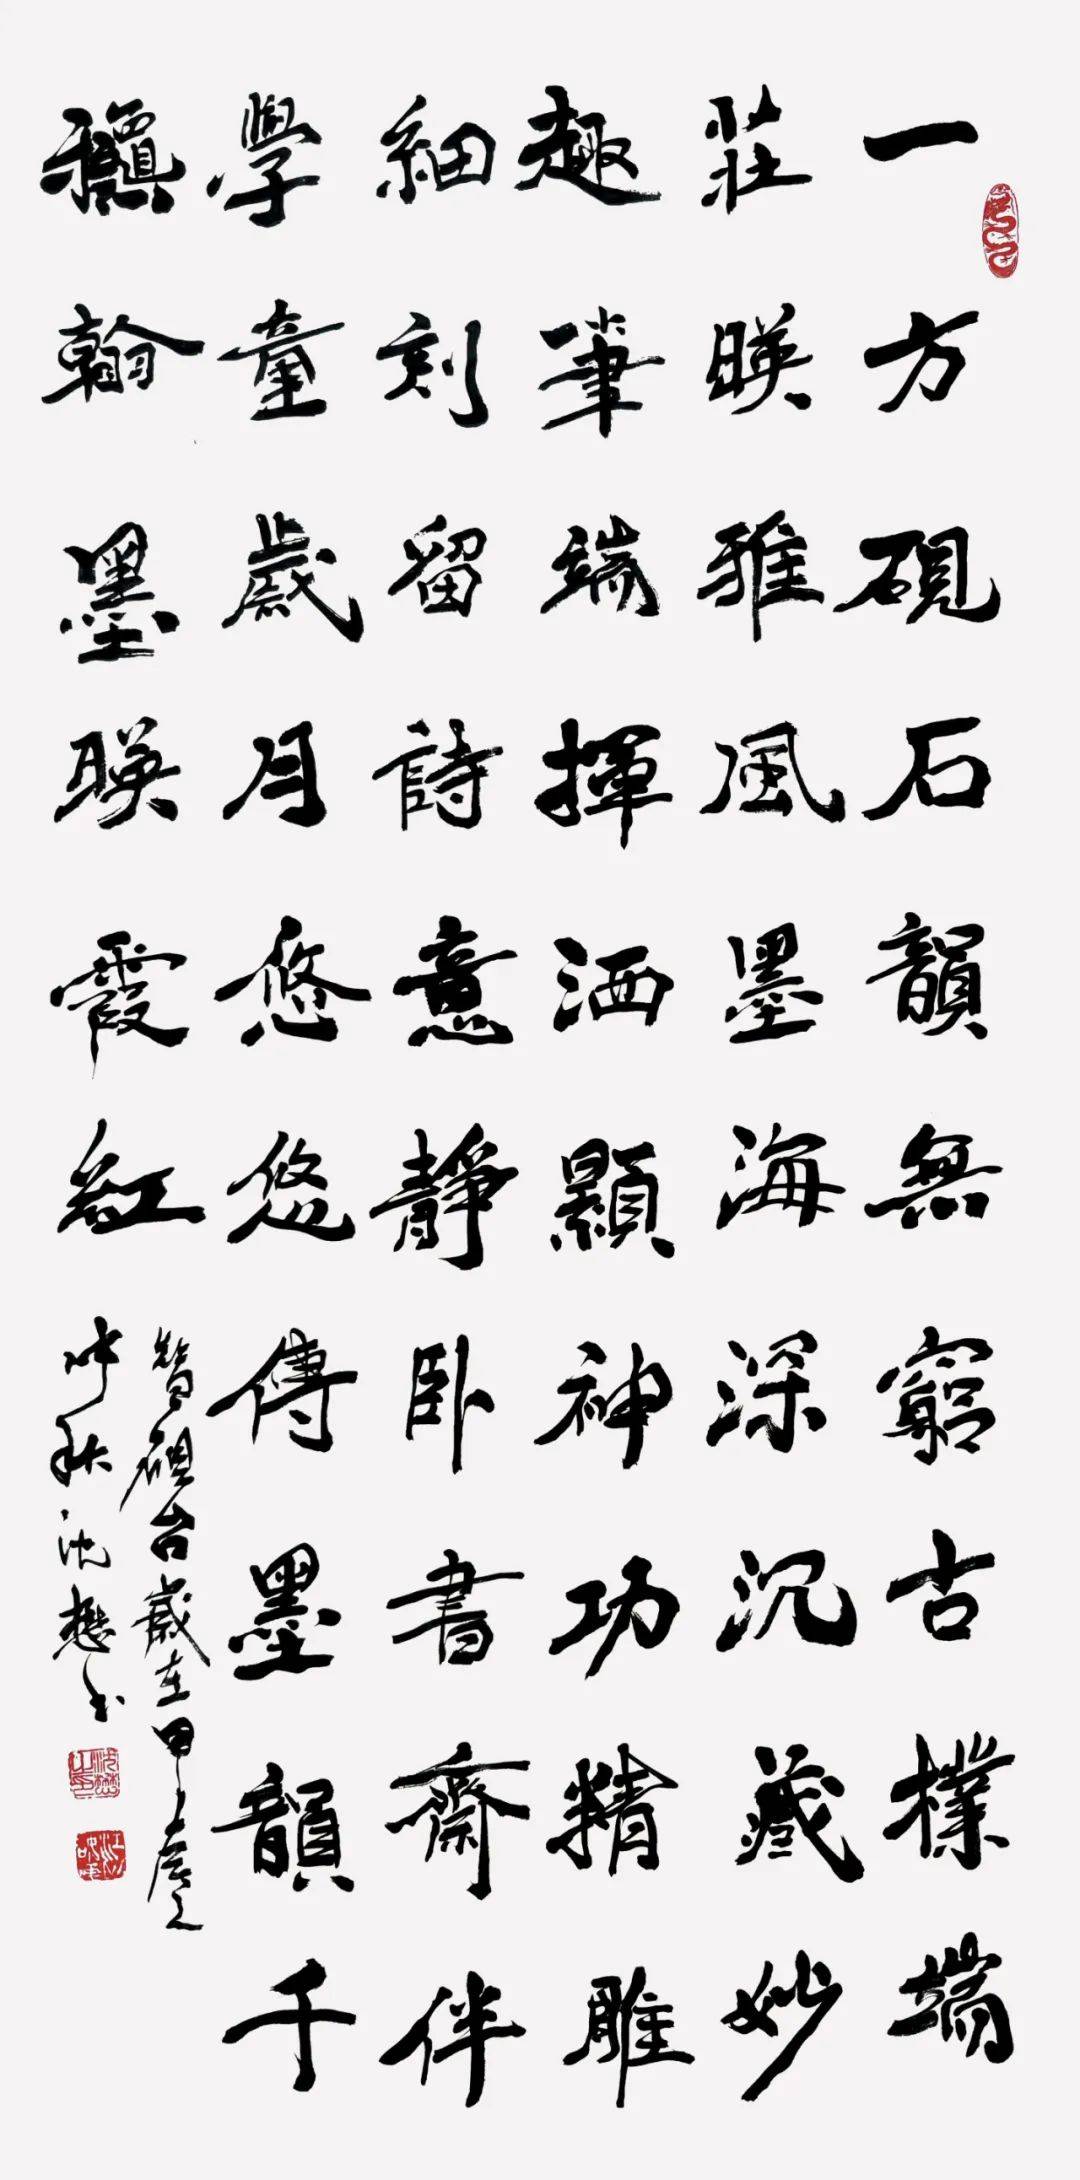 一方硯石韻無窮古樸端
莊暎雅風墨海深沉藏妙
趣筆端揮洒顯神功精雕
細刻留詩意靜卧書齋伴
學童歲月悠悠傳墨韻千
龝翰墨暎霞紅
硯台歲在甲辰之
仲秋沈懋書
沈懋之印